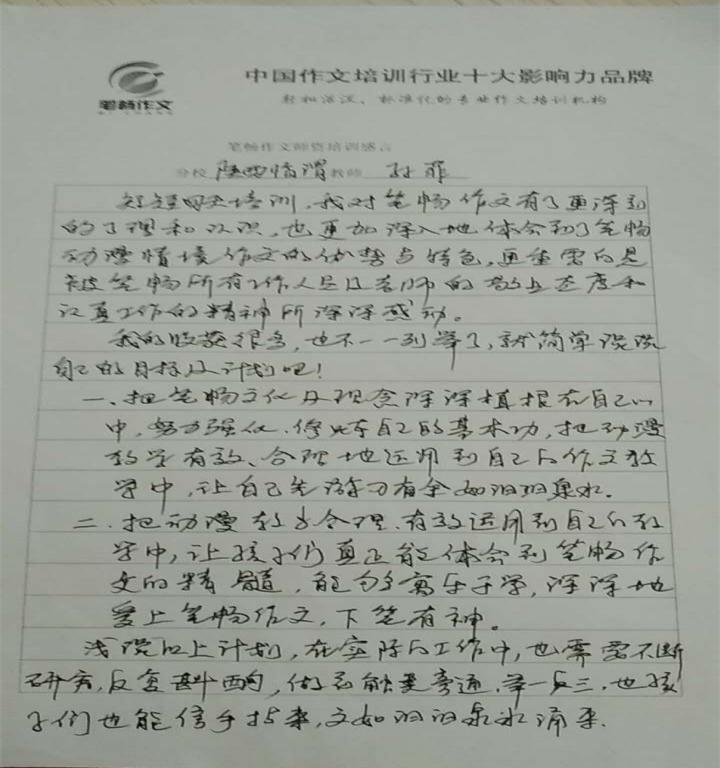 中国作文培训行业十大影响力品牌
笔畅作文
轻松深沉、标准化的专业作文培训机构
笔畅作文师资培训感言
分校 陕西 教师 孙菲
短短四天培训,我对笔畅作文有了更深刻
的了理和认识,也更加深入地体会到了笔畅
动漫情境作文的优势与特色,更重要的是
被笔畅所有工作人员及老师的敬业态度和
认真工作的精神所深深感动。
我的收获很多,也不一一列举了,就简单说说
自己的目标及计划吧!
一、把笔畅文化及理念深深植根在自己心
中,努力强化、修炼自己的基本功,把动漫
教学有效、合理地运用到自己的作文教
学中,让自己先游刃有余如汩汩泉水.
二、把动漫教学合理、有效运用到自己的教
学中,让孩子们真正能体会到笔畅作
文的精髓,能够寓乐于学,深深地
爱上笔畅作文,下笔有神。
浅说以上计划,在实际的工作中,也需要不断
研究,反复斟酌,做到触类旁通,举一反三,也孩
子们也能信手拈来,文如汩汩泉水涌来.